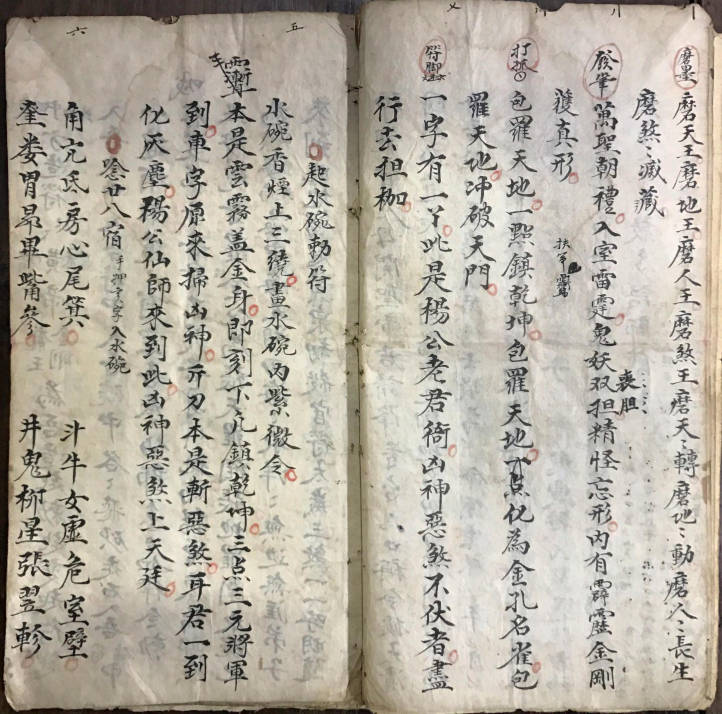 磨墨 磨天王磨地王磨人王磨煞王磨天〻轉磨地〻動磨人〻長生
磨煞〻滅藏
啓筆 萬聖朝禮入室雷霆鬼妖双担精怪忘形內有霹靂金剛
喪胆
獲真形
打点 包羅天地一點鎮乾坤包羅天地一点化為金孔名雀包
羅天地冲破天門
符脚 一字有一丫此是楊公老君符凶神惡煞不伏者盡
行去担枷
五
起水碗勅符
水碗香煙上三繞畫水碗內紫微令
本是雲霧盖金身即刻下凡鎮乾坤三点三元將軍
到車字原來掃凶神斤刀本是斬惡煞耳君一到
化灰塵楊公仙師來到此凶神惡煞上天廷
唸廿八宿 手押字入水碗
角亢氐房心尾箕 斗牛女虛危室壁
奎娄胃昴畢觜參 井鬼柳星張翌軫
六